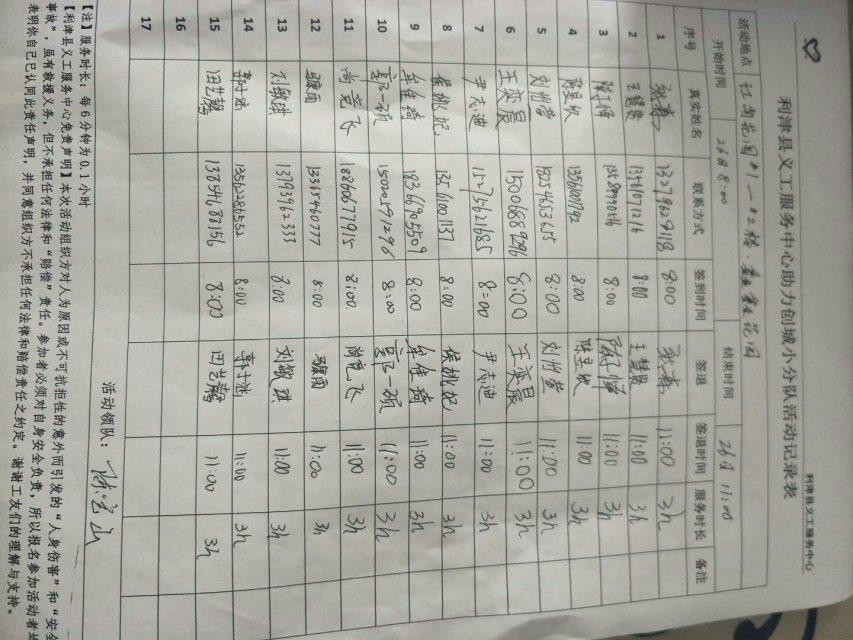 利津县义工服务中心
利津县义工服务中心助力创城小分队活动记录表
活动地点
开始时间 26日 8:00 结束时间 26日 11:00
序号 真实姓名 联系方式 签到时间 签退 签退时间 服务时长 备注
1 8:00 11:00 3h
2 王慧敏 13461071216 8:00 王慧敏 11:00 3h
3 8:00 11:00 3h
4 陈昱欣 8:00 陈昱欣 11:00 3h
5 8:00 11:00 3h
6 王奕晨 15006889296 8:00 王奕晨 11:00 3h
7 尹志迪 15275621685 8:00 尹志迪 11:00 3h
8 13561001137 8:00 11:00 3h
9 牟佳琦 18366905509 8:00 牟佳琦 11:00 3h
10 郭一硕 15002591296 8:00 郭一硕 11:00 3h
11 尚竞飞 18866677915 8:00 尚竞飞 11:00 3h
12 13365460777 8:00 11:00 3h
13 刘敏琪 13793962333 8:00 刘敏琪 11:00 3h
14 13562286552 8:00 11:00 3h
15 田艺馨 13854688156 8:00 田艺馨 11:00 3h
16
17
活动领队:
【注】服务时长:每6分钟为0.1小时
【利津县义工服务中心免责声明】本次活动组织方对人为原因或不可抗拒性的意外而引发的“人身伤害”和“安全
事故”,虽有救援义务,但不承担任何法律和“赔偿”责任。参加者必须对自身安全负责,所以报名参加活动者
表明你自己已认同此责任声明,并同意组织方不承担任何法律和赔偿责任之约定。谢谢工友们的理解与支持。